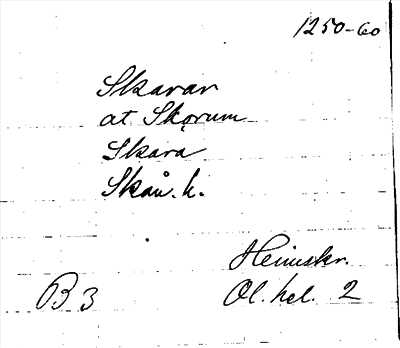 1250-60
Skarar
at Skǫrum
Skara
Skån. h.
Heimskr.
B 3
Ol. hel. 2